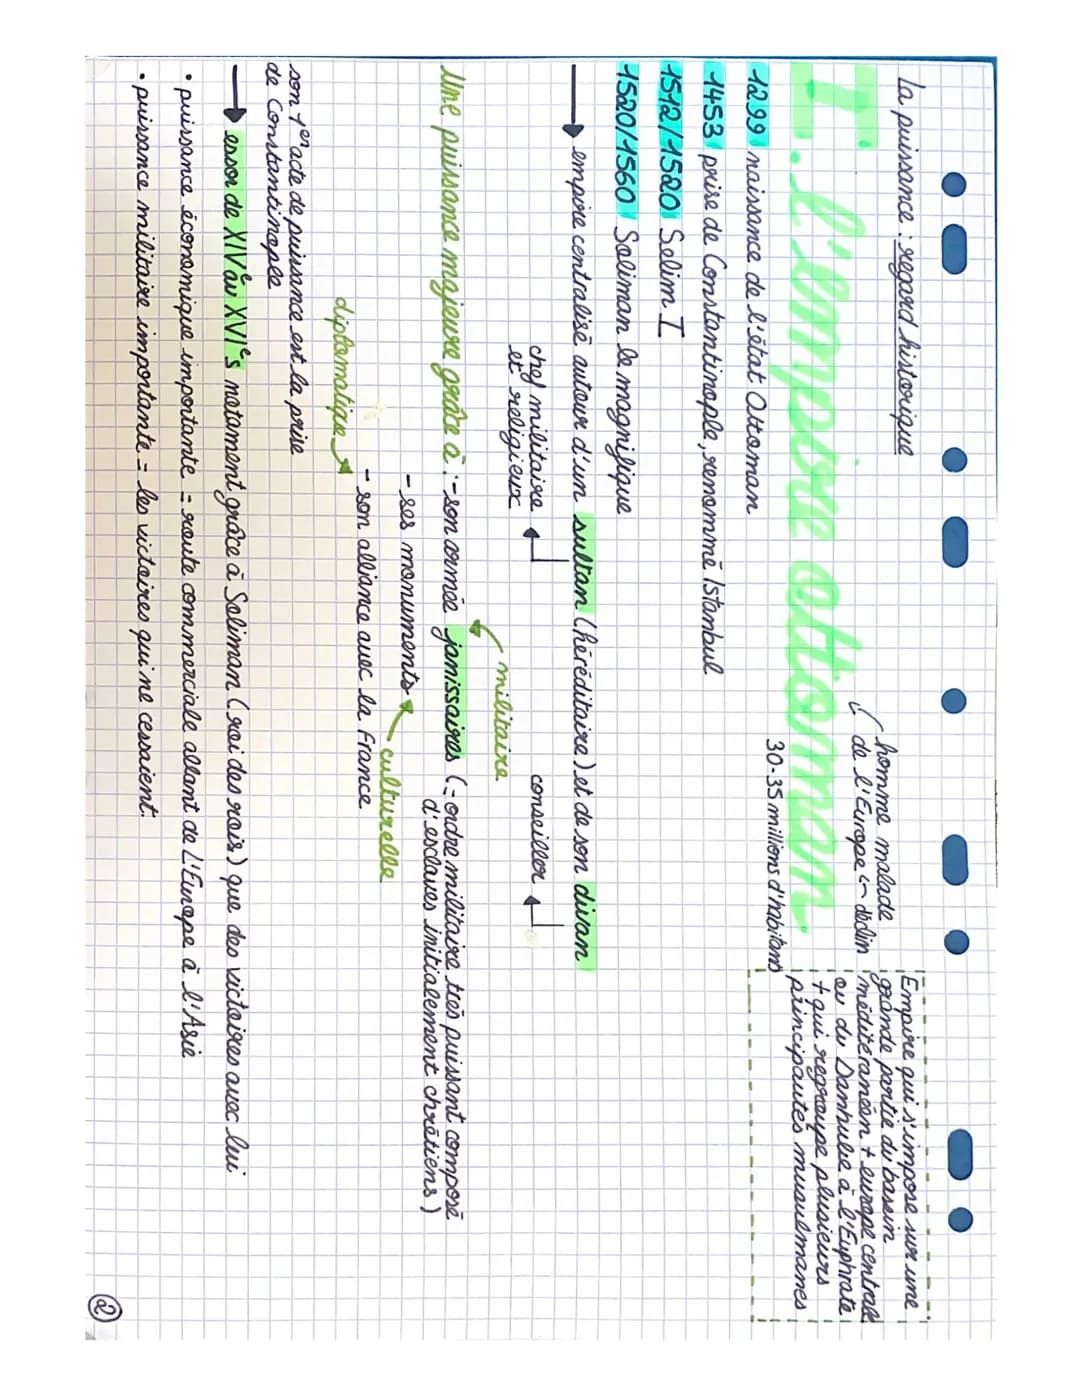 La puissance : regard historique
I. L'empire ottoman
homme malade
de l'Europe déclin
30-35 millions d'habitants
Empire qui s'impose sur une
grande partie du bassin
méditéranéen + europe centrale
ou du Danhube à l'Euphrate
+ qui regroupe plusieurs
principautés musulmanes
1299 naissance de l'état Ottoman
1453 prise de Constantinople, renommé Istanbul
1512/1520 Selim I
1520/1560 Soliman le magnifique
→ empire centralisé autour d'un sultan (héréditaire) et de son divan
chef militaire
et religieux
conseiller
militaire
Une puissance majeure grâce à : - son armée janissaires (= ordre militaire très puissant composé
d'esclaves initialement chrétiens)
- ses monuments
culturelle
- son alliance avec la France
diplomatique
son 1er acte de puissance est la prise
de Constantinople
→ essor de XIVe au XVIe s notament grâce à Soliman (roi des rois) que des victoires avec lui
• puissance économique importante = route commerciale allant de L'Europe à l'Asie
• puissance militaire importante = les victoires qui ne cessaient.
2